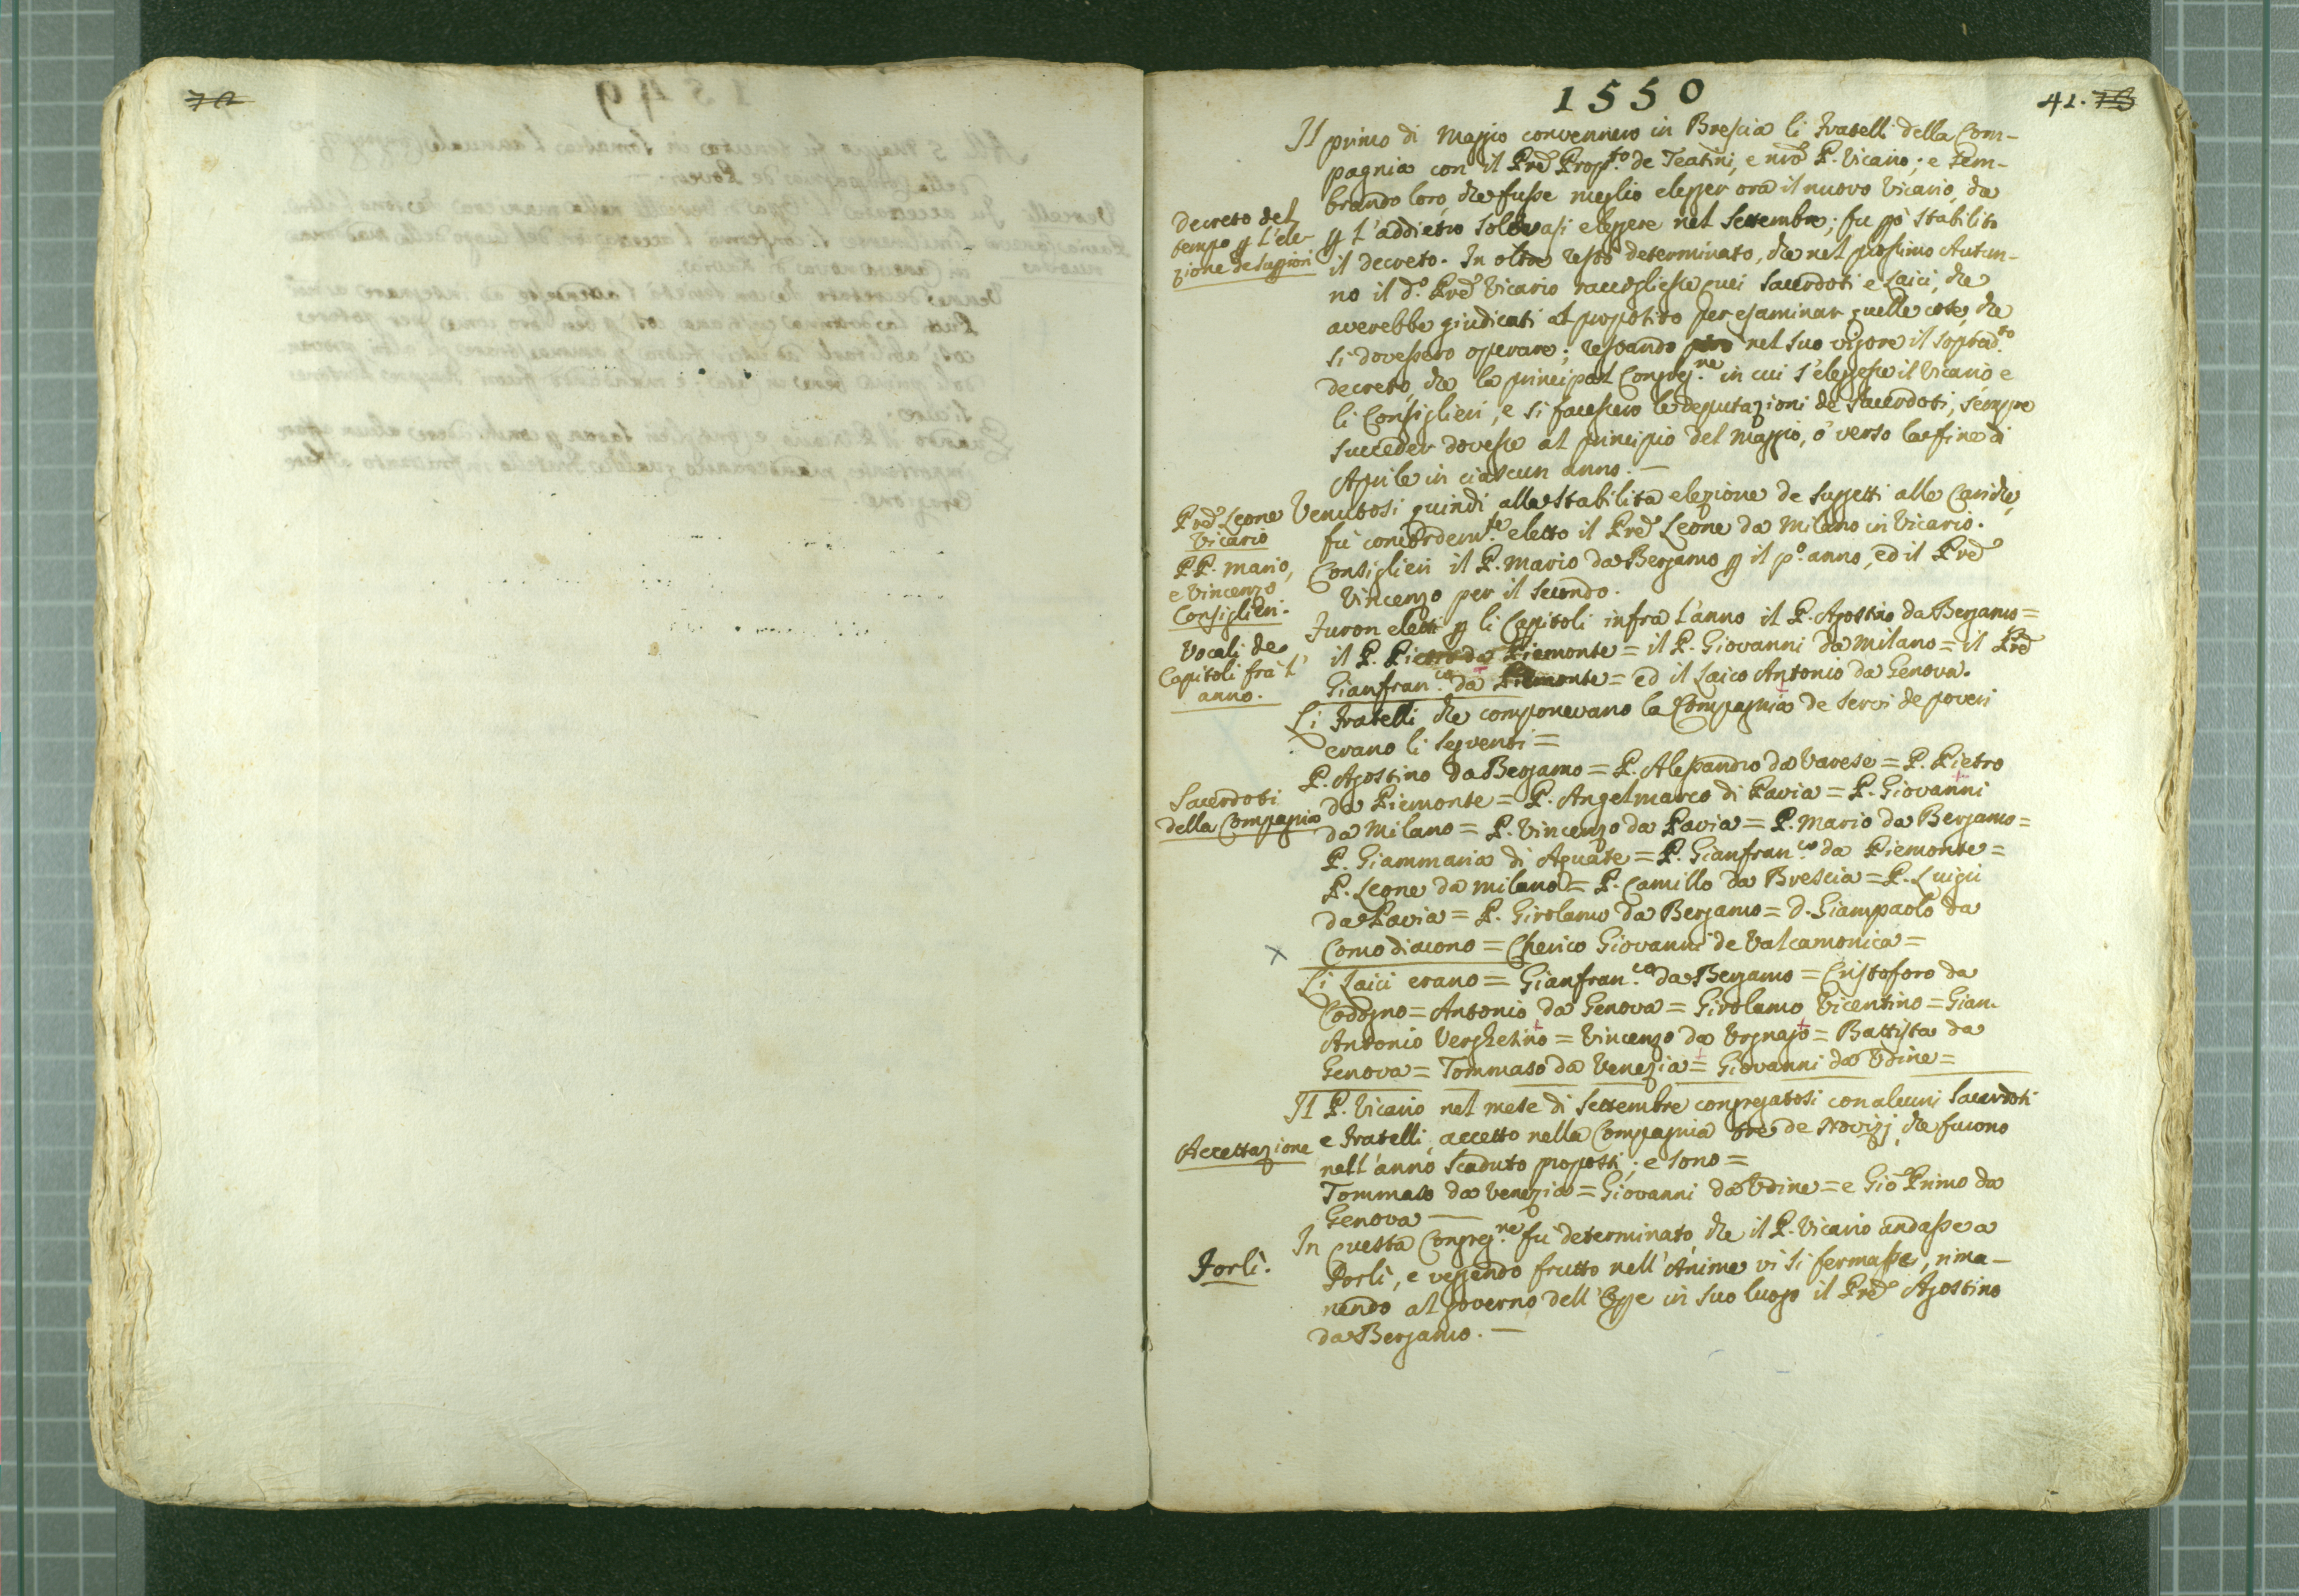 1550
41.
Il primo di Maggio convennero in Brescia li Fratelli della Com-
pagnia con il Prē Prop.to de Teatini, e nrō P. Vicario; e sem-
brando loro, che fusse meglio elegger ora il nuovo Vicario, che
Decreto del
tempo p l'ele-
zione de Suppriori
p l'addietro solevasi eleggere nel Settembre; fu però stabilito
il decreto. In oltre restò determinato, che nel prossimo Autun-
no il d.o Prē Vicario raccogliesse quei Sacerdoti e Laici, che
averebbe giudicati al proposito per esaminar quelle cose, che
si dovessero operare; restando però nel suo vigore il soprad.to
decreto, che la principal Congreg.ne in cui s'eleggesse il Vicario e
li Consiglieri, e si facessero le deputazioni de Sacerdoti, sempre
succeder dovesse al principio del Maggio, o' verso la fine di
Aprile in ciascun anno. —
Prē Leone
Vicario
P.P. Mario,
e Vincenzo
Consiglieri.
Venutosi quindi alla stabilita elezione de suggetti alle Cariche,
fu concordem.te eletto il Prē Leone da Milano in Vicario.
Consiglieri il P. Mario da Bergamo p il p.o anno, ed il Prē
Vincenzo per il secondo.
Vocali de
Capitoli fra l'
anno.
Furon eletti p li Capitoli infra l'anno il P. Agostino da Bergamo =
il P. Pietro da Piemonte = il P. Giovanni da Milano = il Prē
Gianfran.co da Piemonte = ed il Laico Antonio da Genova.
Li Fratelli che componevano la Compagnia de Servi de poveri
erano li seguenti =
Sacerdoti
della Compagnia
P. Agostino da Bergamo = P. Alessandro da Varese = P. Pietro
da Piemonte = P. Angelmarco di Pavia = P. Giovanni
da Milano = P. Vincenzo da Pavia = P. Mario da Bergamo =
P. Giammaria di Aguate = P. Gianfran.co da Piemonte =
P. Leone da Milano = P. Camillo da Brescia = P. Luigi
da Pavia = P. Girolamo da Bergamo = D. Giampaolo da
Como diacono = Cherico Giovanni de Valcamonica =
Li Laici erano = Gianfran.co da Bergamo = Cristoforo da
Codogno = Antonio da Genova = Girolamo Vicentino = Gian
Antonio Verghetino = Vincenzo da Urgnajo = Battista da
Genova = Tommaso da Venezia = Giovanni da Udine =
Accettazione
Il P. Vicario nel mese di Settembre congregatosi con alcuni Sacerdoti
e Fratelli, accettò nella Compagnia tre de Novizj che furono
nell'anno scaduto proposti; e sono =
Tommaso da Venezia = Giovanni da Udine = e Giō Primo da
Genova —
Forlì.
In questa Congreg.ne fu determinato, che il P. Vicario andasse a
Forlì, e veggendo frutto nell'Anime vi si fermasse, rima-
nendo al governo dell'Opre in suo luogo il Prē Agostino
da Bergamo. —